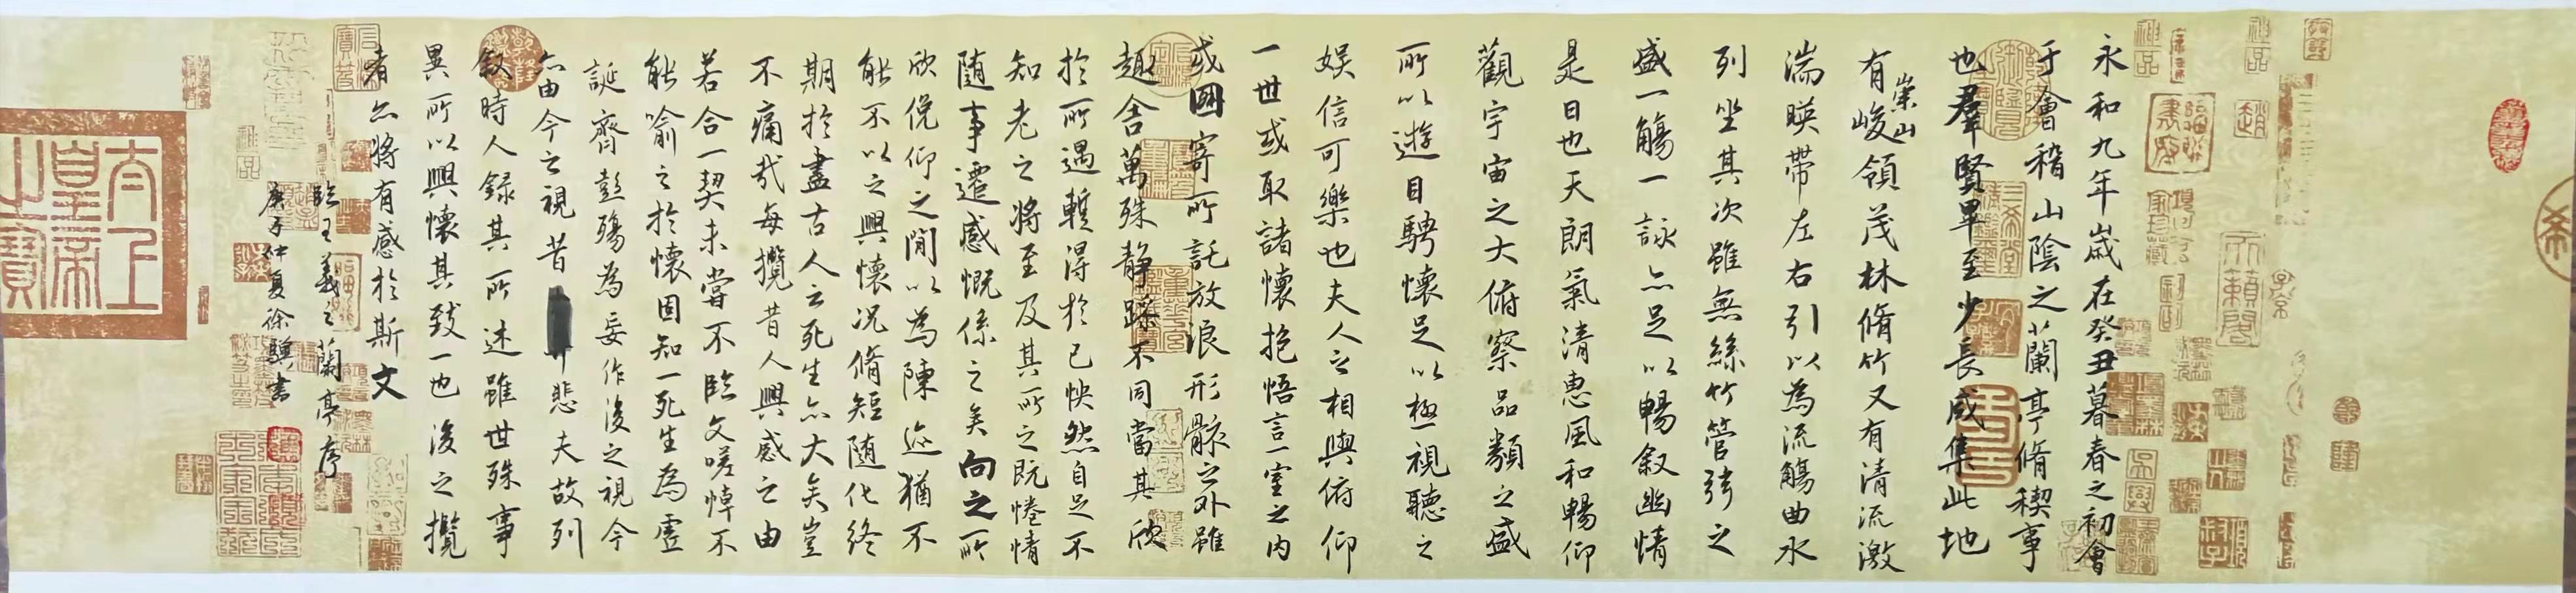 永和九年歲在癸丑暮春之初會
于會稽山陰之蘭亭脩稧事
也羣賢畢至少長咸集此地
有崇山峻領茂林脩竹又有清流激
湍暎帶左右引以為流觴曲水
列坐其次雖無絲竹管弦之
盛一觴一詠亦足以暢敘幽情
是日也天朗氣清惠風和暢仰
觀宇宙之大俯察品類之盛
所以遊目騁懷足以極視聽之
娛信可樂也夫人之相與俯仰
一世或取諸懷抱悟言一室之內
或因寄所託放浪形骸之外雖
趣舍萬殊靜躁不同當其欣
於所遇暫得於己怏然自足不
知老之將至及其所之既惓情
隨事遷感慨係之矣向之所
欣俛仰之閒以為陳迹猶不
能不以之興懷況脩短隨化終
期於盡古人云死生亦大矣豈
不痛哉每攬昔人興感之由
若合一契未嘗不臨文嗟悼不
能喻之於懷固知一死生為虛
誕齊彭殤為妄作後之視今
亦由今之視昔悲夫故列
敘時人錄其所述雖世殊事
異所以興懷其致一也後之攬
者亦將有感於斯文
臨王羲之蘭亭序
庚子仲夏徐驥書
太上皇帝之寶